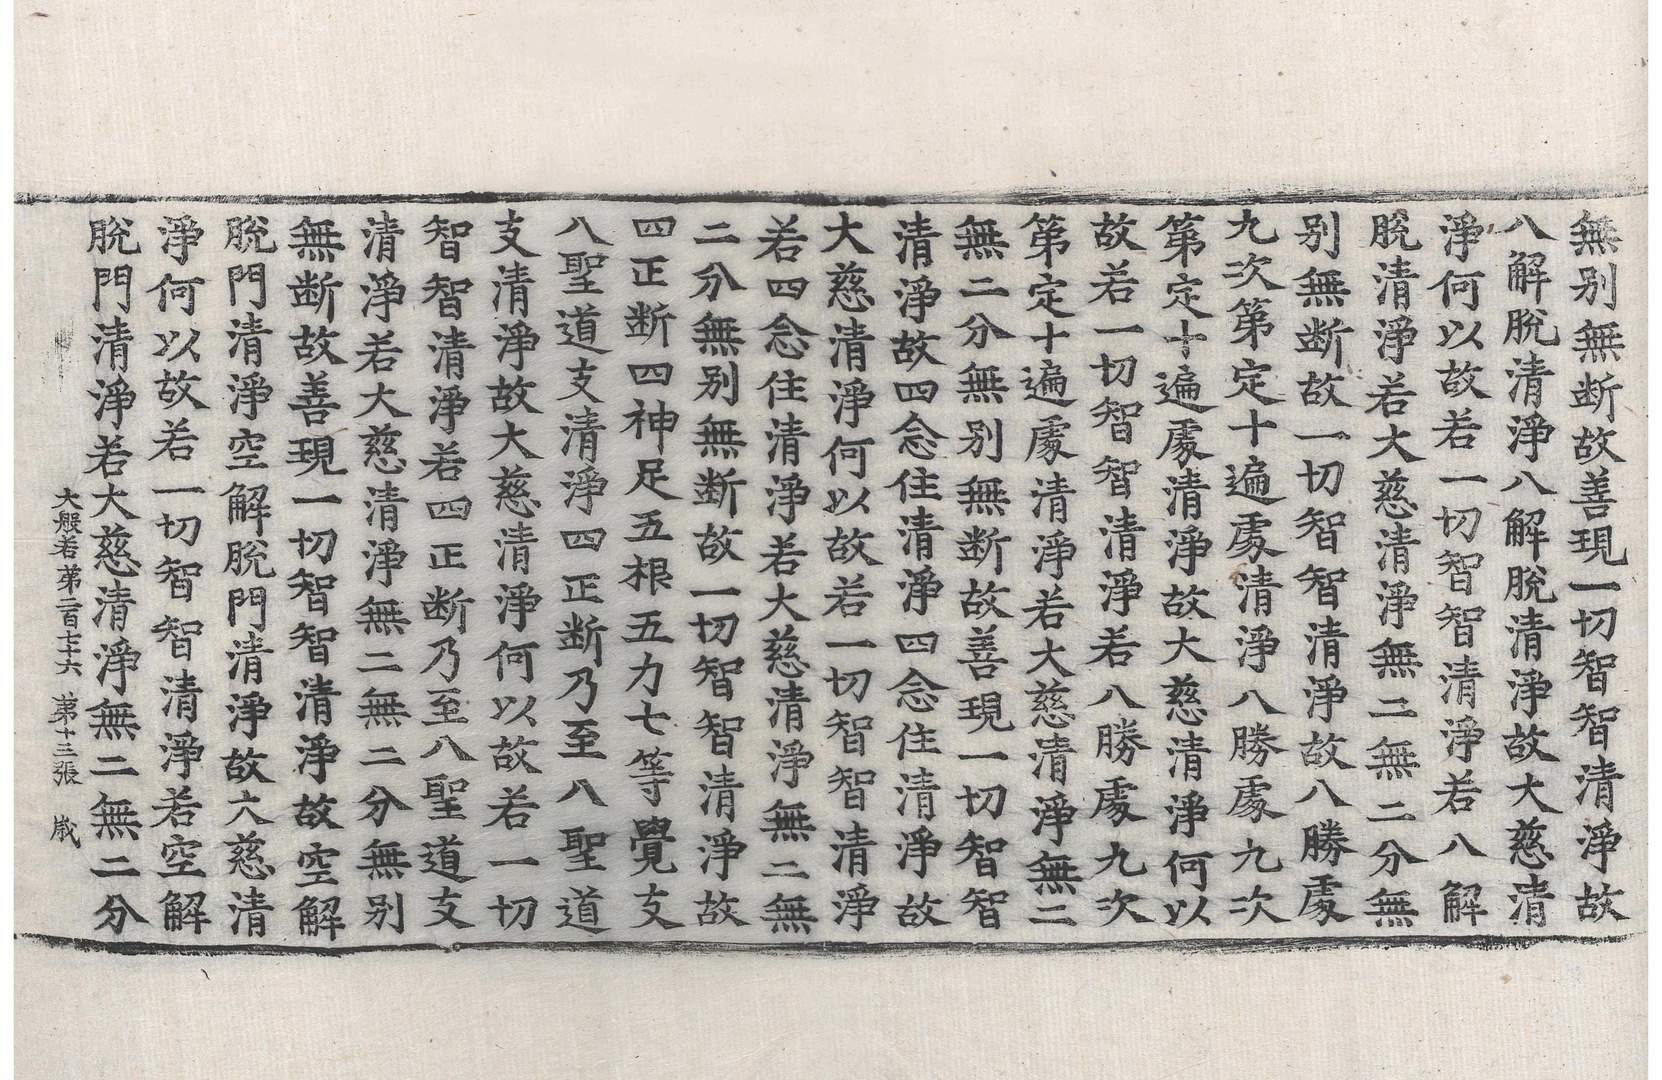 無別無断故善現一切智智清淨故
八解脫清淨八解脫清淨故大慈清
淨何以故若一切智智清淨若八解
脫清淨若大慈清淨無二無二分無
別無断故一切智智清淨故八勝處
九次第定十遍處清淨八勝處九次
第定十遍處清淨故大慈清淨何以
故若一切智智清淨若八勝處九次
第定十遍處清淨若大慈清淨無二
無二分無別無断故善現一切智智
清淨故四念住清淨四念住清淨故
大慈清淨何以故若一切智智清淨
若四念住清淨若大慈清淨無二無
二分無別無断故一切智智清淨故
四正断四神足五根五力七等覺支
八聖道支清淨四正断乃至八聖道
支清淨故大慈清淨何以故若一切
智智清淨若四正断乃至八聖道支
清淨若大慈清淨無二無二分無別
無断故善現一切智智清淨故空解
脫門清淨空解脫門清淨故大慈清
淨何以故若一切智智清淨若空解
脫門清淨若大慈清淨無二無二分
大般若第二百七十六 第十三張 歲